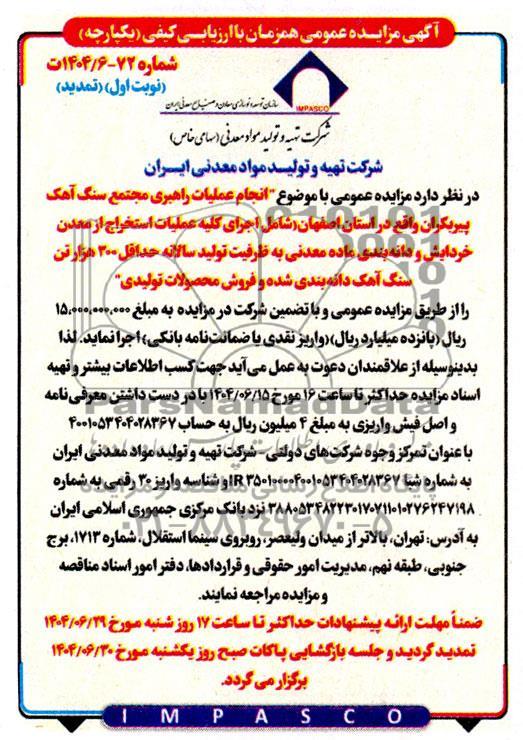 آگهی مزایده عمومی همزمان با ارزیابی کیفی (یکپارچه)
شماره ۷۲-۱۴۰۴/۶ت
(نوبت اول) (تمدید)
IMPASCO
سازمان توسعه و نوسازی معادن و صنایع معدنی ایران
شرکت تهیه و تولید مواد معدنی (سهامی خاص)
شرکت تهیه و تولید مواد معدنی ایران
در نظر دارد مزایده عمومی با موضوع "انجام عملیات راهبری مجتمع سنگ آهک
پیربکران واقع در استان اصفهان (شامل اجرای کلیه عملیات استخراج از معدن
خردایش و دانه‌بندی ماده معدنی به ظرفیت تولید سالانه حداقل ۳۰۰ هزار تن
سنگ آهک دانه‌بندی شده و فروش محصولات تولیدی"
را از طریق مزایده عمومی و با تضمین شرکت در مزایده به مبلغ ۱۵,۰۰۰,۰۰۰,۰۰۰
ریال (پانزده میلیارد ریال) (واریز نقدی یا ضمانت‌نامه بانکی) اجرا نماید. لذا
بدینوسیله از علاقمندان دعوت به عمل می‌آید جهت کسب اطلاعات بیشتر و تهیه
اسناد مزایده حداکثر تا ساعت ۱۶ مورخ ۱۴۰۴/۰۶/۱۵ با در دست داشتن معرفی‌نامه
و اصل فیش واریزی به مبلغ ۴ میلیون ریال به حساب ۴۰۰۱۰۵۳۴۰۴۰۲۸۳۶۷
با عنوان تمرکز وجوه شرکت‌های دولتی- شرکت تهیه و تولید مواد معدنی ایران
به شماره شبا IR ۳۵۰۱۰۰۰۰۴۰۰۱۰۵۳۴۰۴۰۲۸۳۶۷ و شناسه واریز ۳۰ رقمی به شماره
۳۸۸۰۵۳۴۸۲۲۳۰۱۷۰۷۱۱۰۱۰۲۷۶۲۴۷۱۹۸ نزد بانک مرکزی جمهوری اسلامی ایران
به آدرس: تهران، بالاتر از میدان ولیعصر، روبروی سینما استقلال، شماره ۱۷۱۳، برج
جنوبی، طبقه نهم، مدیریت امور حقوقی و قراردادها، دفتر امور اسناد مناقصه
و مزایده مراجعه نمایند.
ضمناً مهلت ارائه پیشنهادات حداکثر تا ساعت ۱۷ روز شنبه مورخ ۱۴۰۴/۰۶/۲۹
تمدید گردید و جلسه بازگشایی پاکات صبح روز یکشنبه مورخ ۱۴۰۴/۰۶/۳۰
برگزار می گردد.
IMPASCO
ParsNamadData
پایگاه اطلاع رسانی مناقصه و مزایده
۰۲۱-۸۸۳۴۹۶۷۰-۵